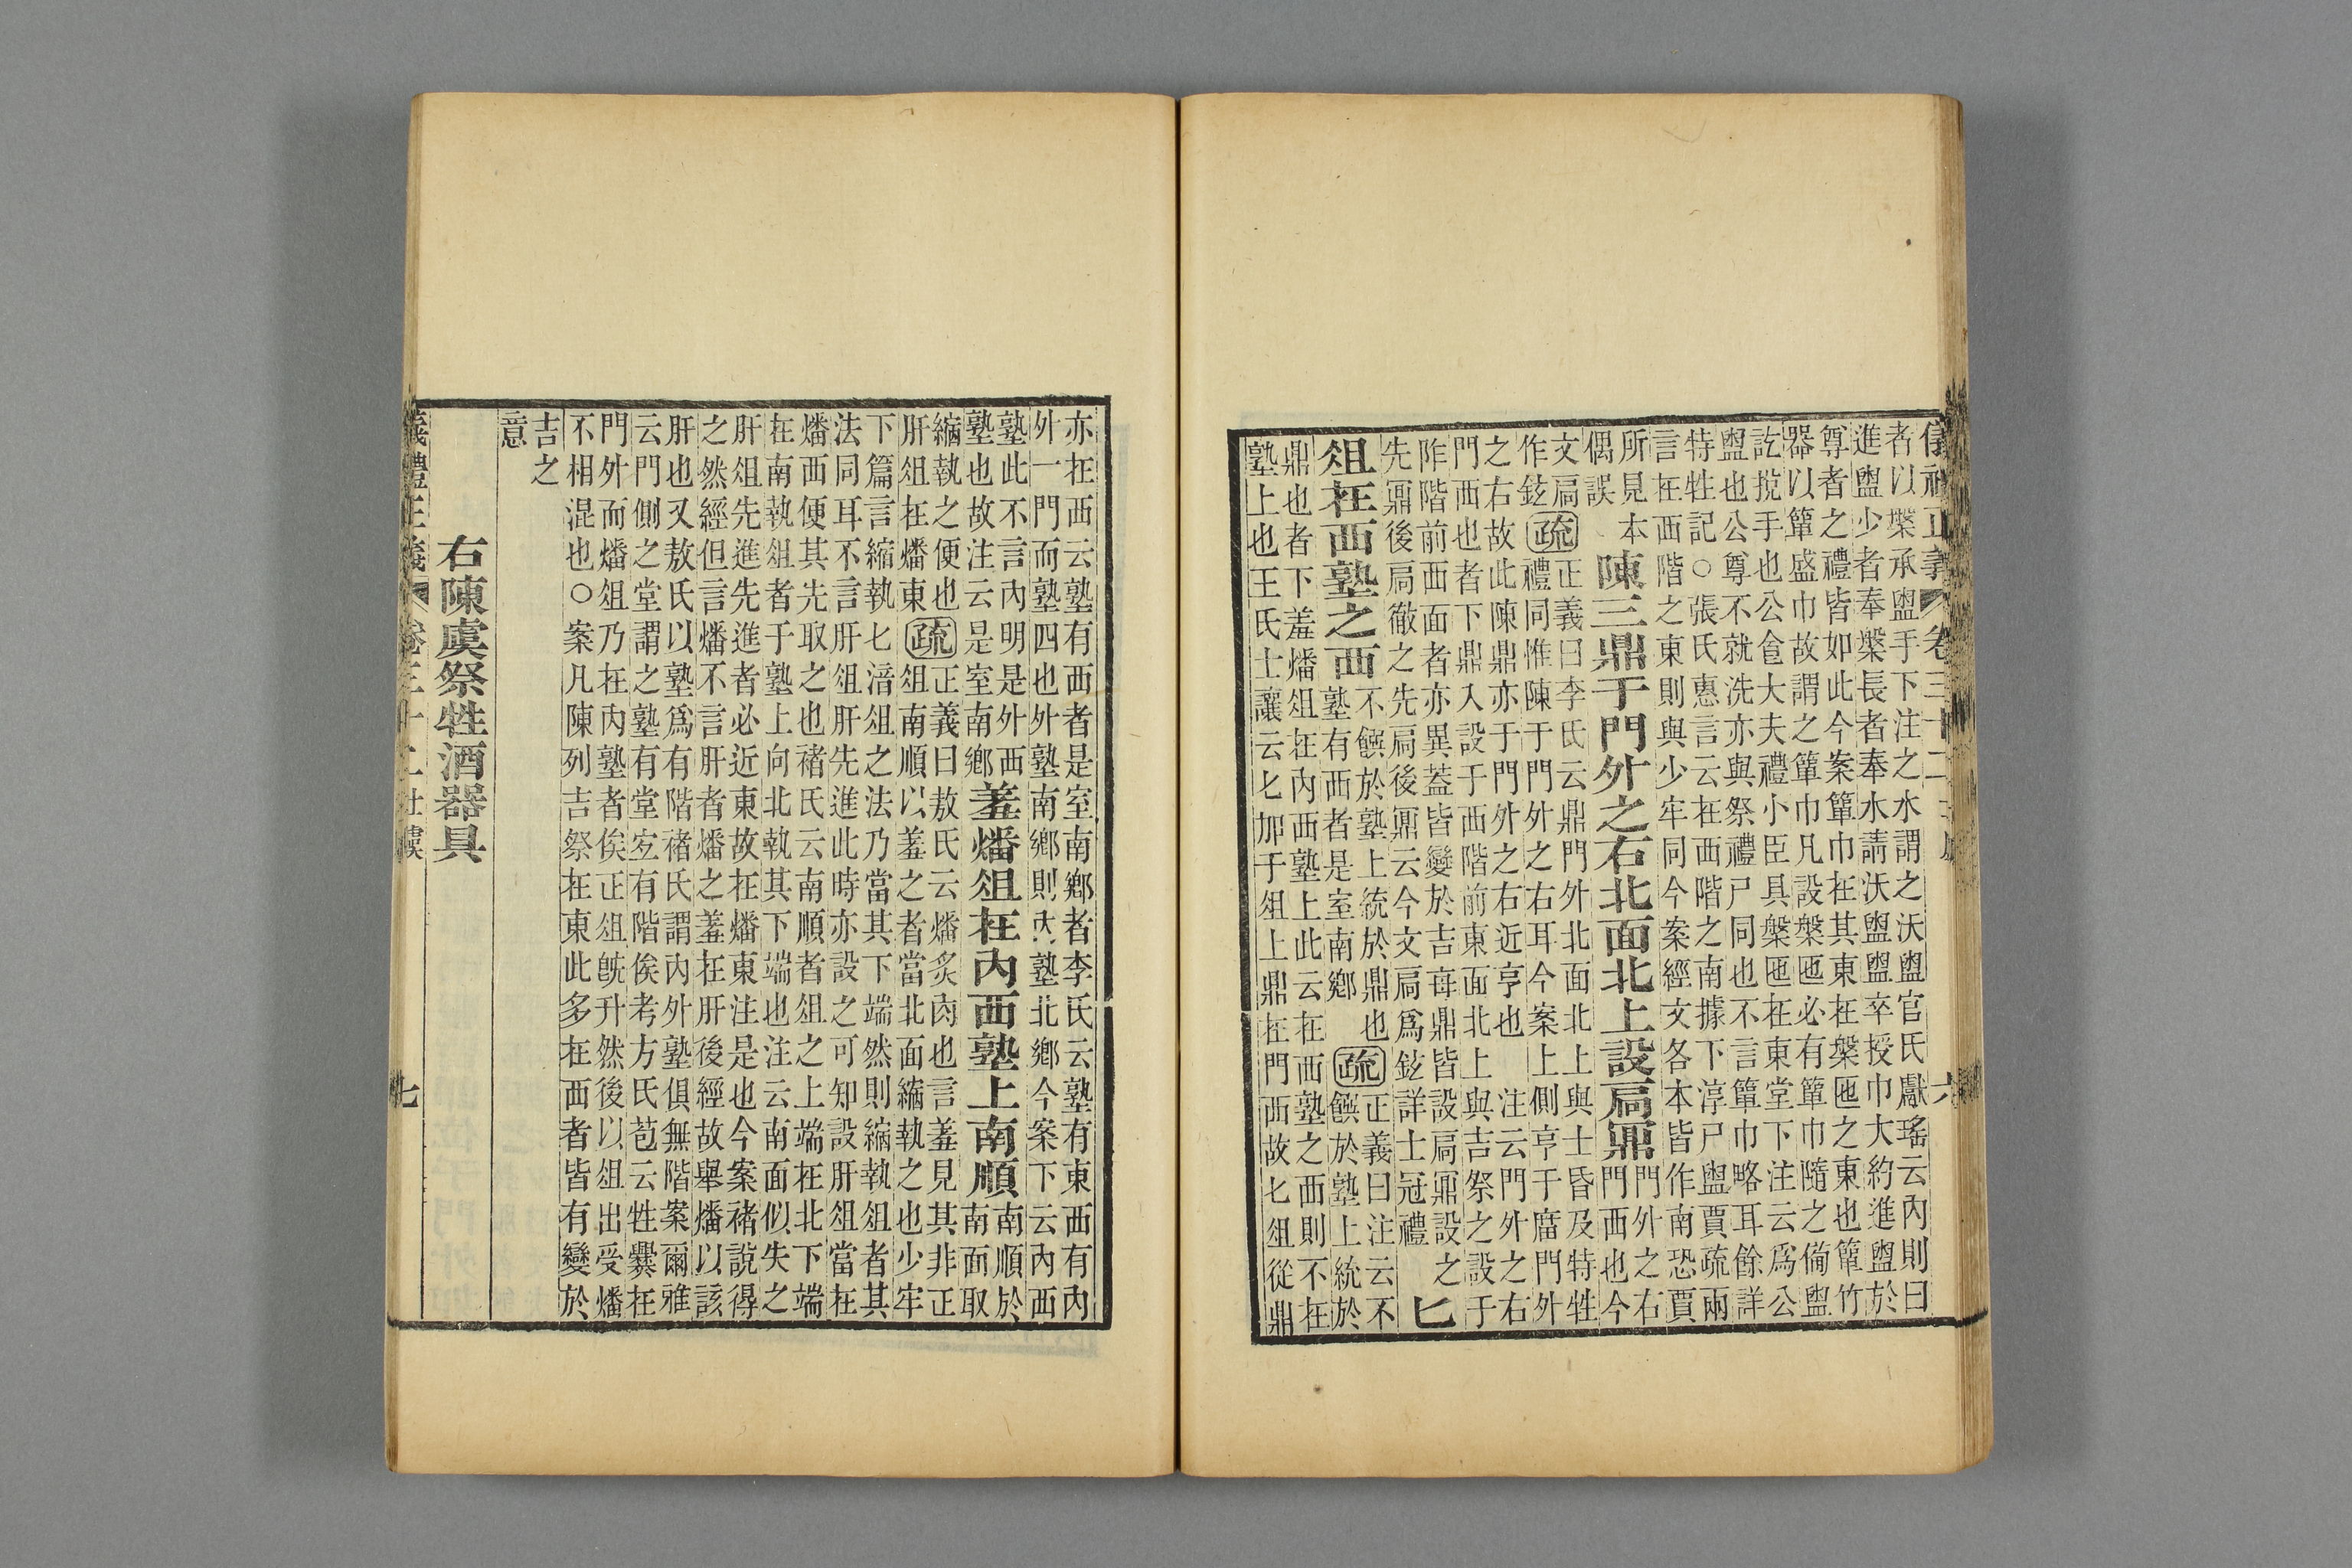 儀禮正義 卷三十二 士虞 六
者以槃承盥手下注之水謂之沃盥官氏獻瑤云內則曰
進盥少者奉槃長者奉水請沃盥盥卒授巾大約進盥於
尊者之禮皆如此今案簞巾在其東在槃匜之東也簞竹
器以簞盛巾故謂之簞巾凡設槃匜必有簞巾隨之備盥
訖挩手也公食大夫禮小臣具槃匜在東堂下注云爲公
盥也公尊不就洗亦與祭禮尸同也不言簞巾略耳餘詳
特牲記○張氏惠言云在西階之南據下淳尸盥賈疏兩
言在西階之東則與少牢同今案經文各本皆作南恐賈
所見本
偶誤
陳三鼎于門外之右北面北上設扃鼏
門外之右
門西也今
文扃
作鉉
疏
正義曰李氏云鼎門外北面北上與士昏及特牲
禮同惟陳于門外之右耳今案上側亨于廟門外
之右故此陳鼎亦于門外之右近亨也 注云門外之右
門西也者下鼎入設于西階前東面北上與吉祭之設于
阼階前西面者亦異蓋皆變於吉每鼎皆設扃鼏設之
先鼏後扃徹之先扃後鼏云今文扃爲鉉詳士冠禮
匕
俎在西塾之西
不饌於塾上統於鼎也
塾有西者是室南鄉
疏
正義曰注云不
饌於塾上統於
鼎也者下羞燔俎在內西塾上此云在西塾之西則不在
塾上也王氏士讓云匕加于俎上鼎在門西故匕俎從鼎
亦在西云塾有西者是室南鄉者李氏云塾有東西有內
外一門而塾四也外塾南鄉則內塾北鄉今案下云內西
塾此不言內明是外西
塾也故注云是室南鄉
羞燔俎在內西塾上南順
南順於
南面取
縮執之便也
肝俎在燔東
疏
正義曰敖氏云燔炙肉也言羞見其非正
俎南順以羞之者當北面縮執之也少牢
下篇言縮執匕湆俎之法乃當其下端然則縮執俎者其
法同耳不言肝俎肝先進此時亦設之可知設肝俎當在
燔西便其先取之也褚氏云南順者俎之上端在北下端
在南執俎者于塾上向北執其下端也注云南面似失之
肝俎先進先進者必近東故在燔東注是也今案褚說得
之然經但言燔不言肝者燔之羞在肝後經故舉燔以該
肝也又敖氏以塾爲有階褚氏謂內外塾俱無階案爾雅
云門側之堂謂之塾有堂室有階俟考方氏苞云牲爨在
門外而燔俎乃在內塾者俟正俎旣升然後以俎出受燔
不相混也○案凡陳列吉祭在東此多在西者皆有變於
吉之
意
右陳虞祭牲酒器具
儀禮正義 卷三十二 士虞 七